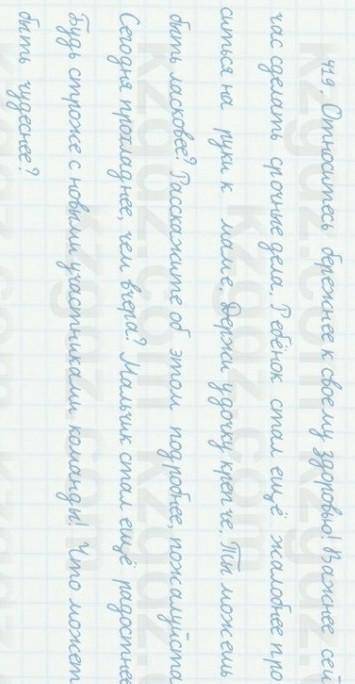 419. Относитесь бережнее к своему здоровью! Важнее сей
час сделать срочные дела. Ребёнок стал ещё жалобнее про
ситься на руки к маме. Держи удочку крепче. Ты можешь
быть ласковее? Расскажите об этом подробнее, пожалуйста
Сегодня прохладнее, чем вчера? Мальчик стал ещё радостнее
Будь строже с новыми участниками команды! Что может
быть чудеснее?